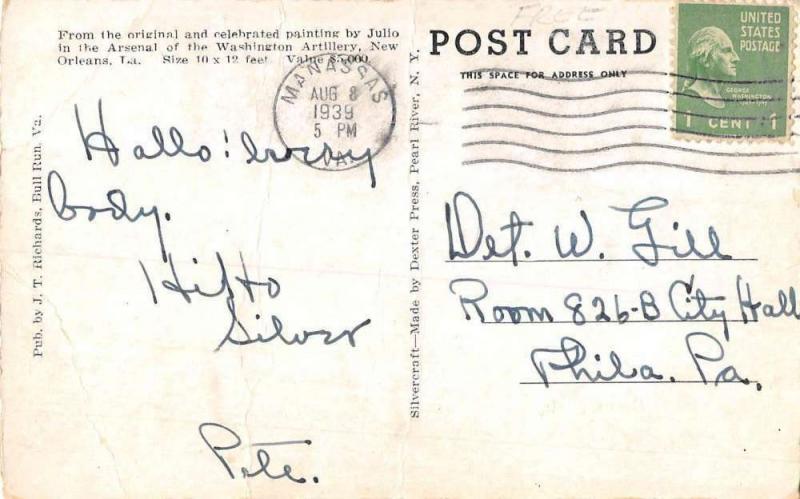 From the original and celebrated painting by Julio
in the Arsenal of the Washington Artillery, New
Orleans, La. Size 10 x 12 feet. Value $5,000.
Hallo! every
body.
Hi to
Silver
Pete.
Pub. by J. T. Richards, Bull Run, Va.
Silvercraft—Made by Dexter Press, Pearl River, N. Y.
FREE
POST CARD
THIS SPACE FOR ADDRESS ONLY
MANASSAS
AUG 8
1939
5 PM
VA.
UNITED
STATES
POSTAGE
GEORGE
WASHINGTON
1 CENT 1
Det. W. Gill
Room 826-B City Hall
Phila. Pa.